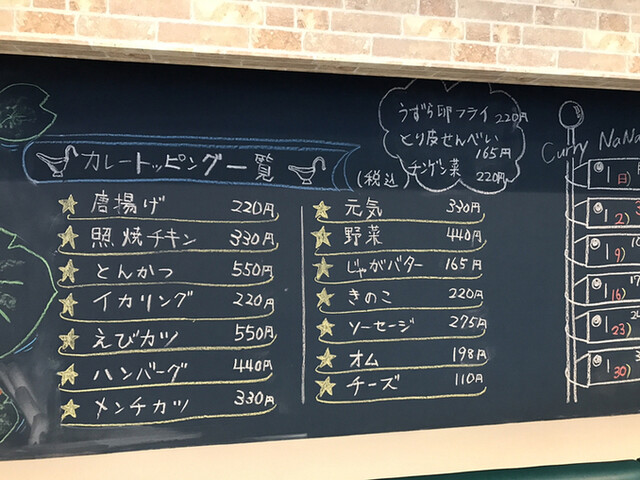 うずら卵フライ 220円
とり皮せんべい
165円
チンゲン菜 220円
カレートッピング一覧
(税込)
唐揚げ 220円
照焼チキン 330円
とんかつ 550円
イカリング 220円
えびカツ 550円
ハンバーグ 440円
メンチカツ 330円
元気 330円
野菜 440円
じゃがバター 165円
きのこ 220円
ソーセージ 275円
オム 198円
チーズ 110円
Curry NaNa
1
日)
1
2)
1
9)
1
16)
1
23)
1
30)